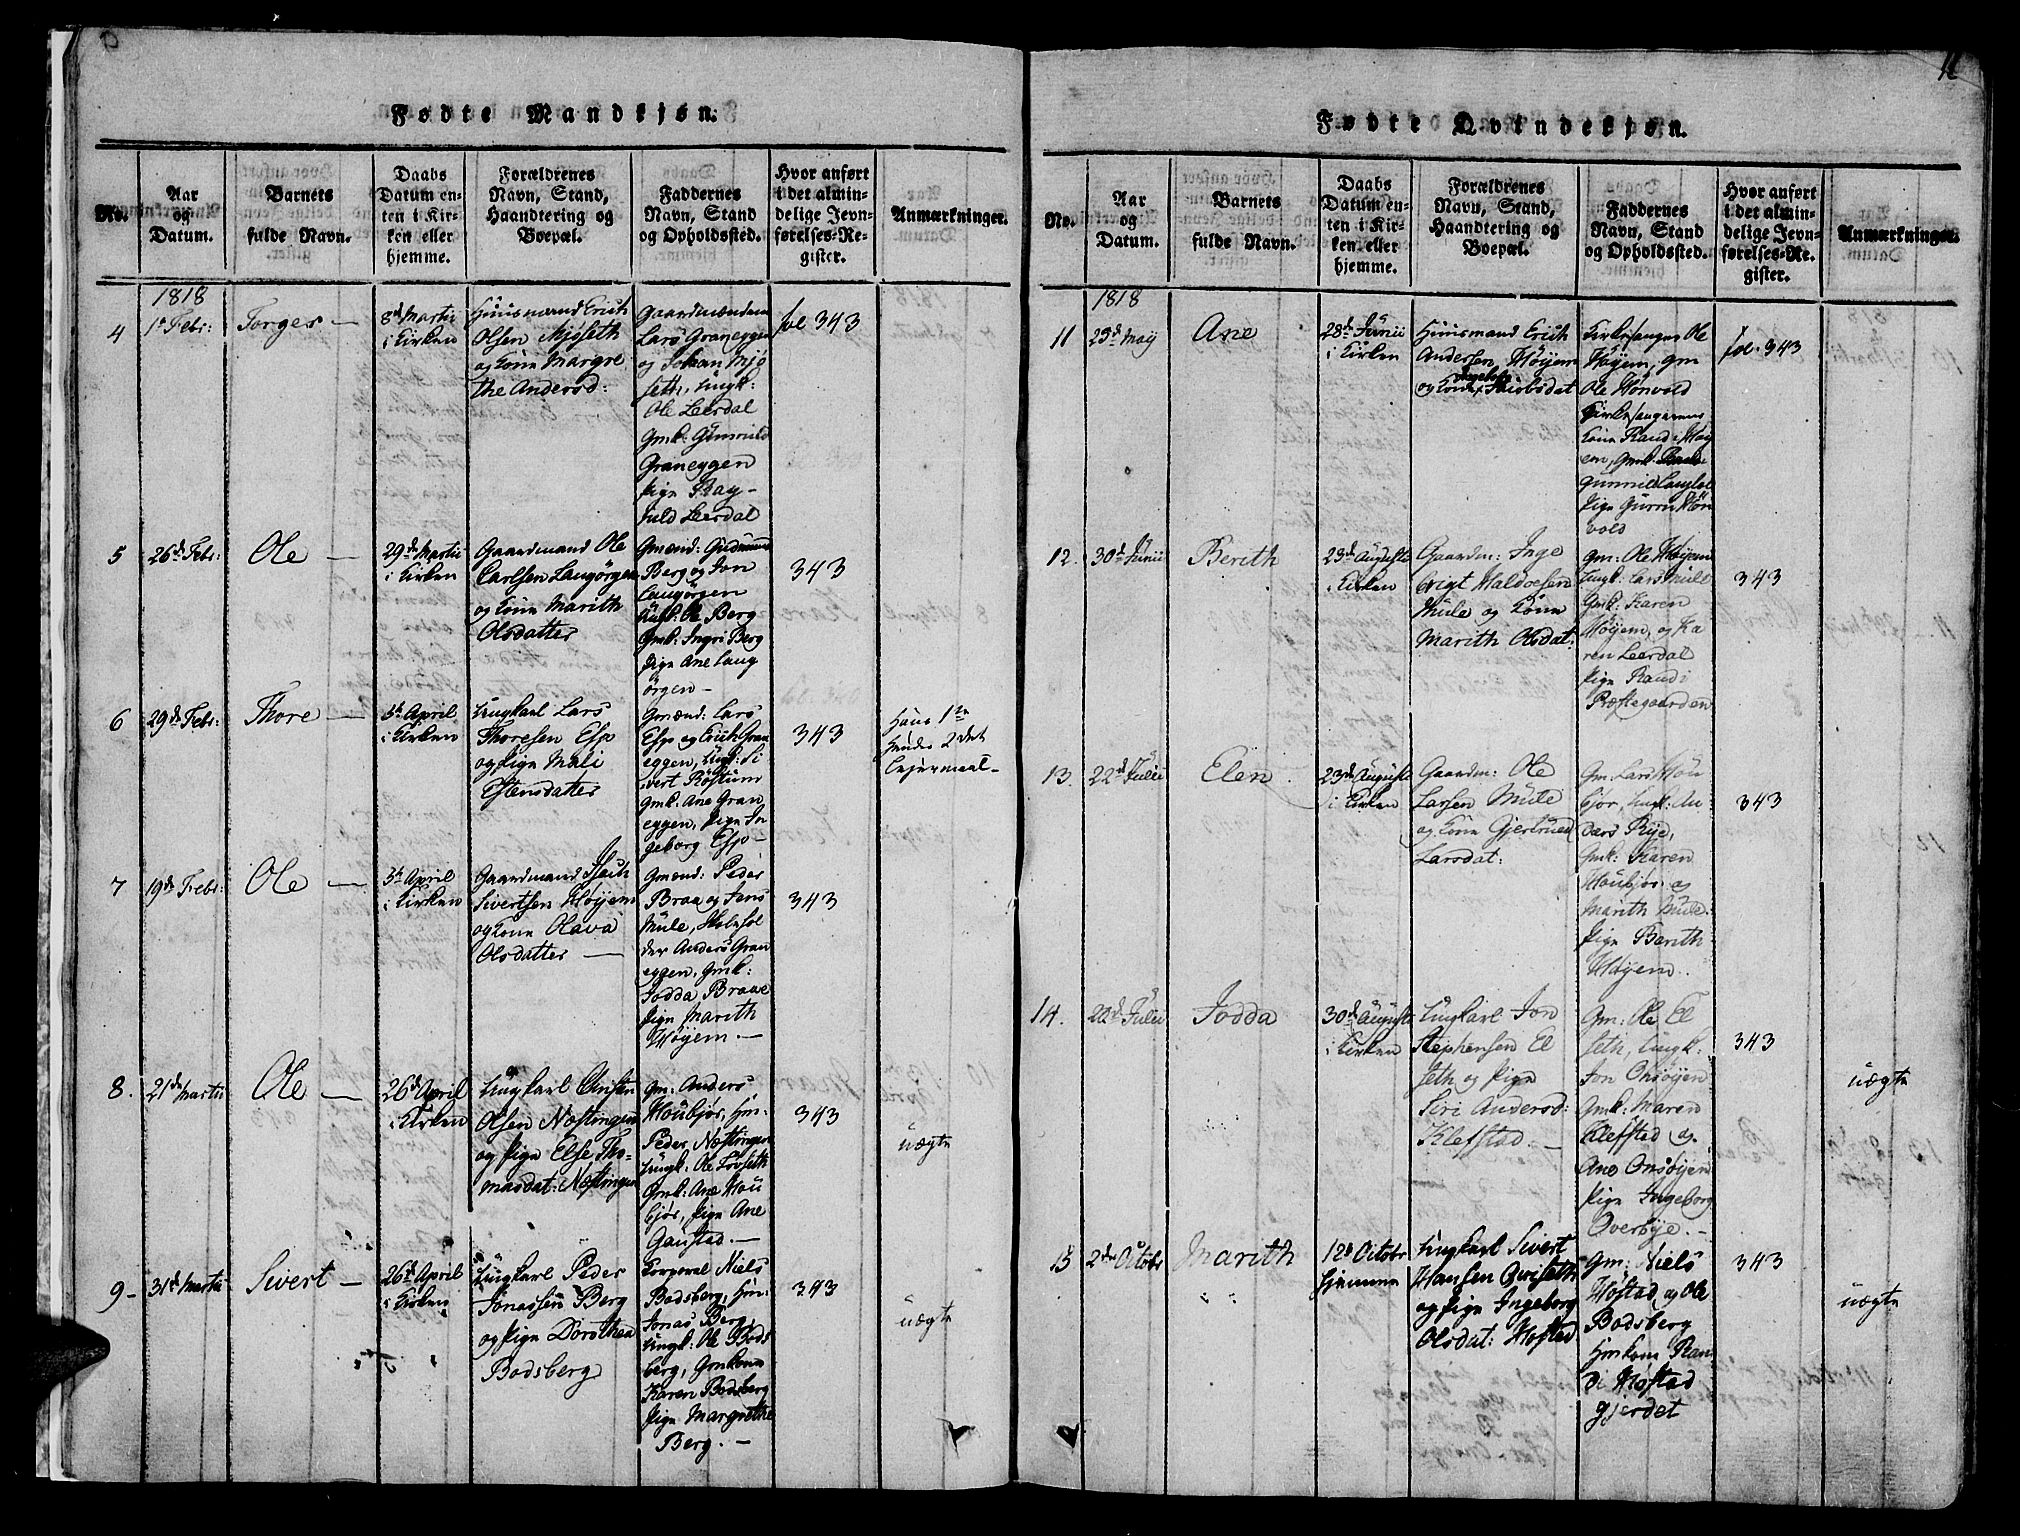 Fødte Mandkjøn.
No.
Aar
og
Datum.
Barnets
fulde Navn.
Daabs
Datum en-
ten i Kir-
ken eller
hjemme.
Forældrenes
Navn, Stand,
Haandtering og
Boepæl.
Faddernes
Navn, Stand
og Opholdssted.
Hvor anført
i det almin-
delige Jevn-
førelses-Re-
gister.
Anmærkninger.
1818
4
1ste Febr:
Torger —
8d Martii
i Kirken
Huusmand Erich
Olsen Mjøseth
og Kone Margre
the Andersd:
Gaardmændene
Lars Graneggen
og Johan Mjø
seth, Ungk:
Ole Leerdal
Gmk: Gunnild
Graneggen
Pige Rag-
nild Leerdal
fol 343
5
26de Febr:
Ole —
29de Martii
i Kirken
Gaardmand Ole
Carlsen Langørgen
og Kone Marith
Olsdatter
Gmænd: Gudmund
Berg og Jon
Langørgen
Ungk: Ole Berg
Gmk: Ingri Berg
Pige Ane Lang
ørgen —
343
6
29de Febr:
Thore —
5te April
i Kirken
Ungkarl Lars
Thoresen Esp
og Pige Mali
Estensdatter
Gmænd: Lars
Esp og Erich Gran
eggen, Ungk: Si
vert Røstum
Gmk: Ane Gran
eggen, Pige In
geborg Esp —
343
Hans 1te
hendes 2det
Lejermaal —
7
19de Febr:
Ole —
5te April
i Kirken
Gaardmand
Sivertsen Høyem
og Kone Olava
Olsdatter —
Gmænd: Peder
Braa og Jens
Mule,
der Anders Gran
eggen, Gmk:
Jodda Braae
Pige Marith
Høyem. —
343
8.
21de Martii
Ole —
26de April
i Kirken
Ungkarl Christen
Olsen Næstingen
og Pige Else Tho-
masdat: Næstingen
Gm: Anders
Houbjør, Hm:
Peder Næstingen
Ungk: Ole Løvseth
Gmk: Ane Hou
bjør, Pige Ane
Gaustad. —
343
uægte
9 -
31de Martii
Sivert —
26de April
i Kirken
Ungkarl Peder
Jonassen Berg
og Pige Dorothea
Bodsberg
Corporal Niels
Bodsberg, Hm:
Jonas Berg
Ungk: Ole Bods
berg, Gmkone
Karen Bodsberg
Pige Margrethe
Berg. —
343
uægte
Fødte Qvindekjøn.
No.
Aar
og
Datum.
Barnets
fulde Navn.
Daabs
Datum en-
ten i Kir-
ken eller
hjemme.
Forældrenes
Navn, Stand,
Haandtering og
Boepæl.
Faddernes
Navn, Stand
og Opholdssted.
Hvor anført
i det almin-
delige Jevn-
førelses-Re-
gister.
Anmærkninger.
1818
11
23de May
Ane
28de Junii
i Kirken
Huusmand Erich
Andersen Høiem
og Kone Ingeborg Jacobsdat
Kirkesanger Ole
Høyem, Gm
Ole Hønvold
Kirkesangerens
Kone Randi Høy
em, Gmk:
Gunnild
Pige Guru Høn
vold
fol. 343
12.
30te Junii
Berith
23de Auguste
i Kirken
Gaardm: Inge
brigt Haldoesen
Mule og Kone
Marith Olsdat:
Gm: Ole Høyem
Ungk: Lars Mule
Gmk: Karen
Høyem, og Ka
ren Leerdal
Pige Randi
Præstegaarden
343
13.
22de Julii
Elen
23de Auguste
i Kirken
Gaardm: Ole
Larsen Mule
og Kone Gjertrued
Larsdat:
Gm: Lars Hou
bjør, Ungk: An-
ders Rye,
Gmk: Karen
Houbjør og
Marith Mule:
Pige Berith
Høyem.
343
14.
22de Julii
Jodda
30de Auguste
i Kirken
Ungkarl Jon
Stephensen El
seth og Pige
Siri Andersd:
Klefstad. —
Gm: Ole El
seth, Ungk:
Jon Onsøyen
Gmk: Maren
Klefstad og
Ane Onsøyen
Pige Ingeborg
Overbye. —
343
uægte
15
2de Octobr
Marith
12te Octobr
hjemme
Ungkarl Sivert
Hansen Qviseth
og Pige Ingeborg
Olsdat: Hofstad
Gm: Niels
Hofstad og Ole
Bodsberg
Hmkone Ran
di Hofstad
gjerdet
343
uægte